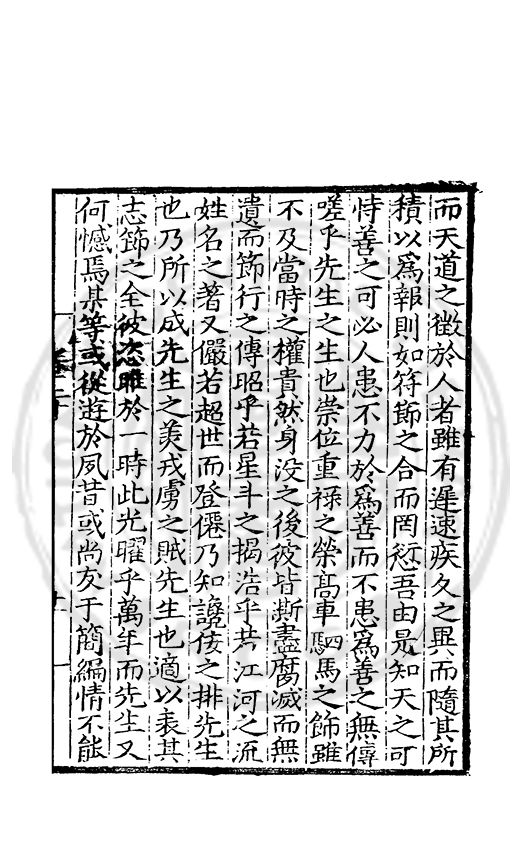 而天道之徵於人者雖有遲速疾久之異而隨其所
積以爲報則如符節之合而罔愆吾由是知天之可
恃善之可必人患不力於爲善而不患爲善之無傳
嗟乎先生之生也崇位重祿之榮高車駟馬之飾雖
不及當時之權貴然身沒之後彼皆澌盡腐滅而無
遺而節行之傳昭乎若星斗之揭浩乎共江河之流
姓名之著又儼若超世而登僊乃知讒佞之排先生
也乃所以成先生之美戎虜之賊先生也適以表其
志節之全彼恣睢於一時此光曜乎萬年而先生又
何憾焉某等或從遊於夙昔或尚友于簡編情不能
卷二十